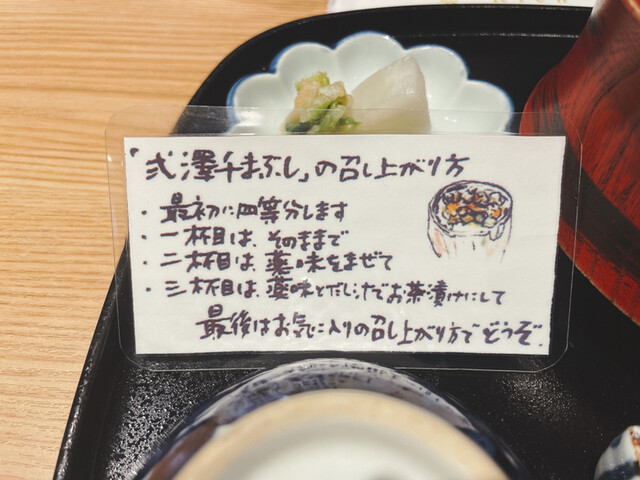 「弍澤千まぶし」の召し上がり方
・最初に四等分します
・一杯目は、そのままで
・二杯目は、薬味をまぜて
・三杯目は、薬味とだし汁でお茶漬けにして
最後はお気に入りの召し上がり方でどうぞ。